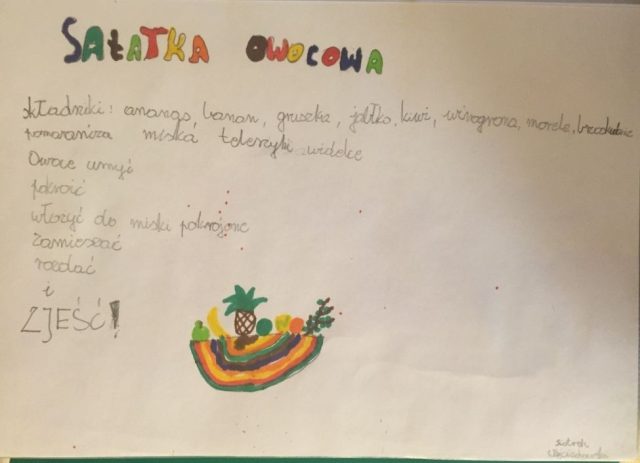 SAŁATKA OWOCOWA
składniki: ananas, banan, gruszka, jabłko, kiwi, winogrona, morela, brzoskwinie
pomarańcza miska talerzyki widelce
Owoce umyć
pokroić
włożyć do miski pokrojone
Zamieszać
rozdać
i
ZJEŚĆ!